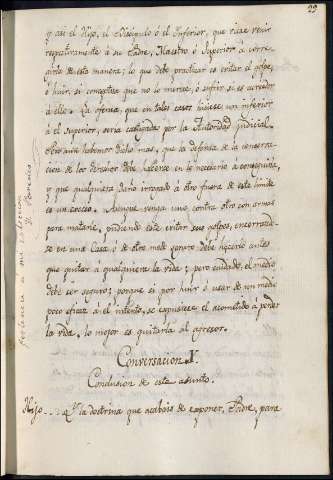 99
y así el Hijo, el Discípulo ó el Inferior, que viese venir
respectivamente á su Padre, Maestro ó Superior á corre-
girle de esta manera; lo que debe practicar es evitar el golpe,
ó huir si conociese que no lo merece, ó sufrir si es acreedor
á ello. La ofensa, que en tales casos hiciese un inferior
á el Superior, seria castigada por la Autoridad judicial.
Pero aun habemos dicho mas, que la defensa de la conserva-
cion de los derechos debe hacerse en lo necesario á conseguirla,
y que qualquiera daño irrogado á otro fuera de este limite
es un exceso. Aunque venga uno contra otro con armas
para matarle, pudiendo este evitar sus golpes, encerrando-
se en una Casa ó de otro modo seguro debe hacerlo antes
que quitar á qualquiera la vida; pero cuidado, el medio
debe ser seguro; porque si por huir ó usar de un medio
poco eficaz á el intento, se expusiese el acometido á perder
la vida, lo mejor es quitarla al agresor.
Conversacion V.
Conclusion de este asunto.
Hijo.... Y la doctrina que acabais de exponer, Padre, para
Pertenece a mi coleccion